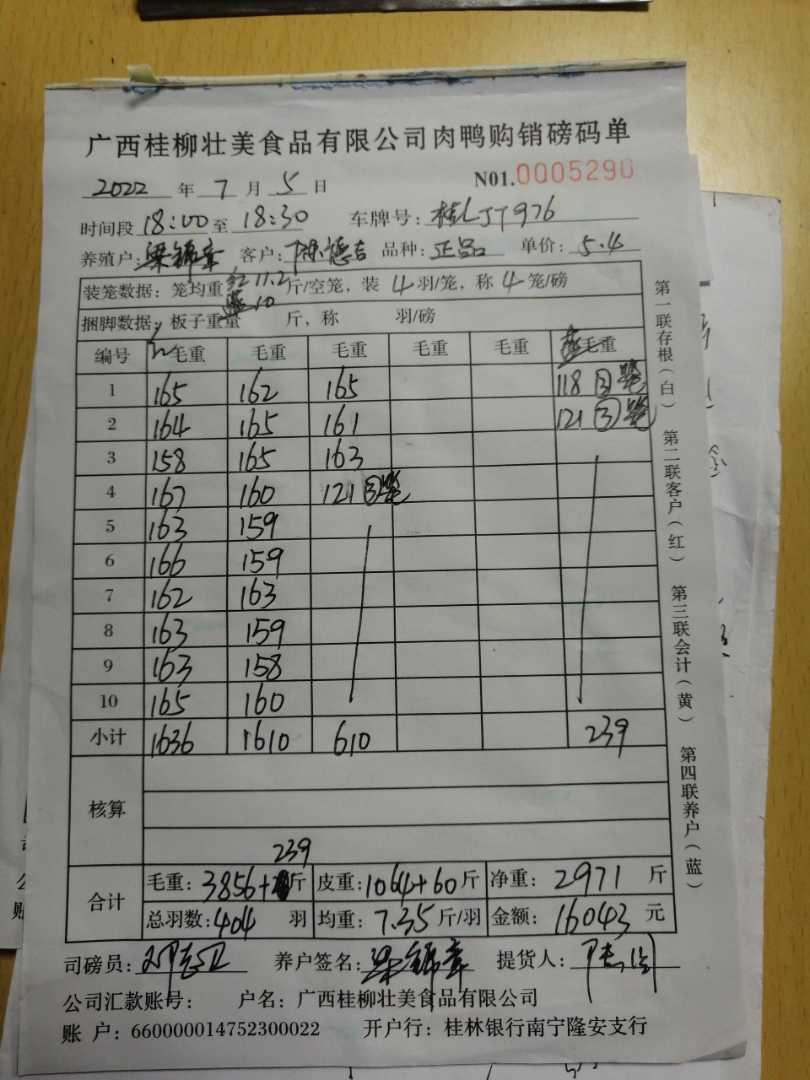 广西桂柳壮美食品有限公司肉鸭购销磅码单
2022 年 7 月 5 日 N01.0005290
时间段 18:00 至 18:30 车牌号: 桂LJT976
养殖户: 梁锦章 客户: 陈德吉 品种: 正品 单价: 5.4
装笼数据: 笼均重 红 11.2 斤/空笼, 装 4 羽/笼, 称 4 笼/磅
蓝 10
捆脚数据: 板子重量 斤, 称 羽/磅
编号 毛重 毛重 毛重 毛重 毛重 毛重
1 165 162 165 118 ③笼
2 164 165 161 121 ③笼
3 158 165 163
4 167 160 121 ③笼
5 163 159
6 166 159
7 162 163
8 163 159
9 163 158
10 165 160
小计 1636 1610 610 239
核算
239
合计 毛重: 3856+ 斤 皮重: 1064+60 斤 净重: 2971 斤
总羽数: 404 羽 均重: 7.35 斤/羽 金额: 16043 元
司磅员: 养户签名: 梁锦章 提货人:
公司汇款账号: 户名: 广西桂柳壮美食品有限公司
账 户: 660000014752300022 开户行: 桂林银行南宁隆安支行
第一联存根(白) 第二联客户(红) 第三联会计(黄) 第四联养户(蓝)